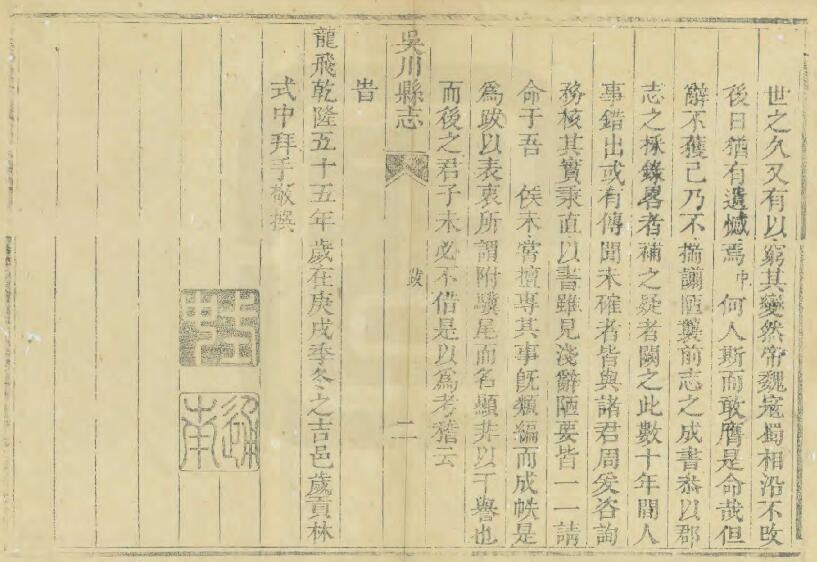 世之久又有以窮其變然帝魏寇蜀相沿不改
後日猶有遺憾焉中何人斯而敢膺是命哉但
辭不獲已乃不揣譾陋襲前志之成書恭以郡
志之採錄畧者補之疑者闕之此數十年間人
事錯出或有傳聞未確者皆與諸君周爰咨詢
務核其實秉直以書雖見淺辭陋要皆一一請
命于吾 侯未嘗擅專其事旣類編而成帙是
爲跋以表衷所謂附驥尾而名顯非以干譽也
而後之君子未必不借是以爲考稽云
吳川縣志
跋
二
旹
龍飛乾隆五十五年歲在庚戌季冬之吉邑歲貢林
式中拜手敬撰